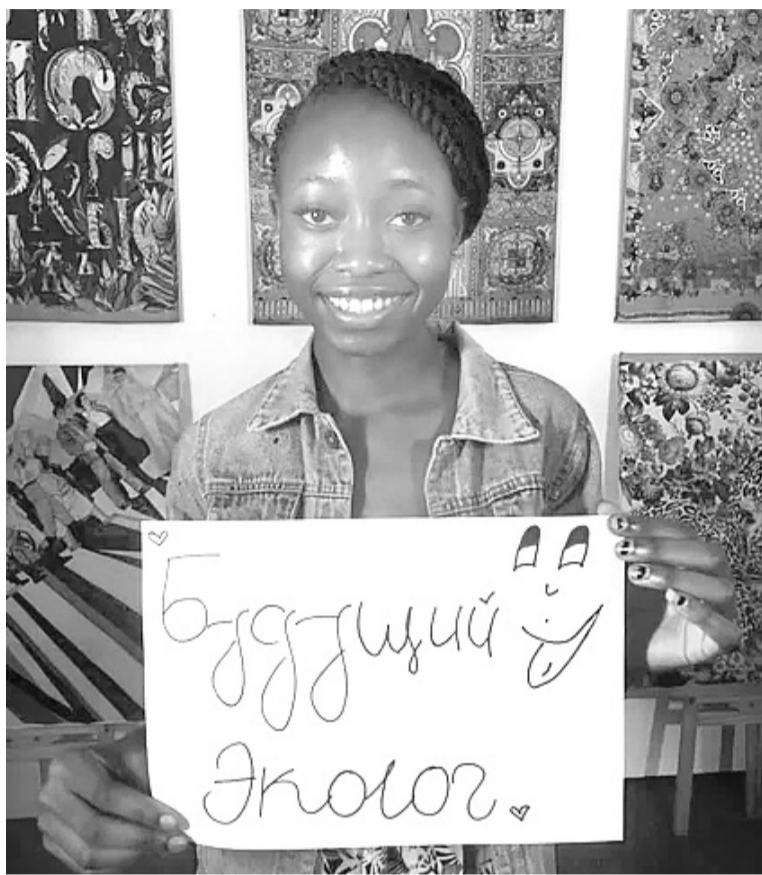 Будущий
Эколог.